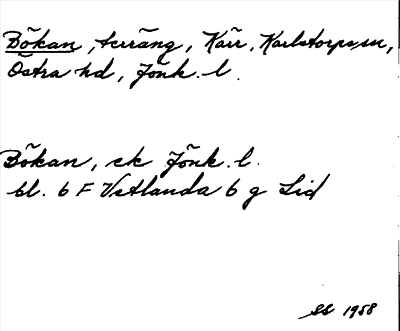 Bökan, terräng, Kärr, Karlstorps sn,
Östra hd, Jönk. l.
Bökan, ek Jönk. l.
bl. 6 F Vetlanda 6 g Lid
SS 1958